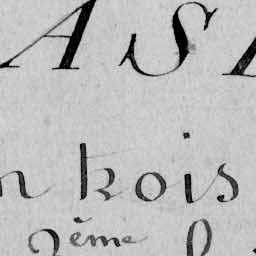 AS
n kois
2ème